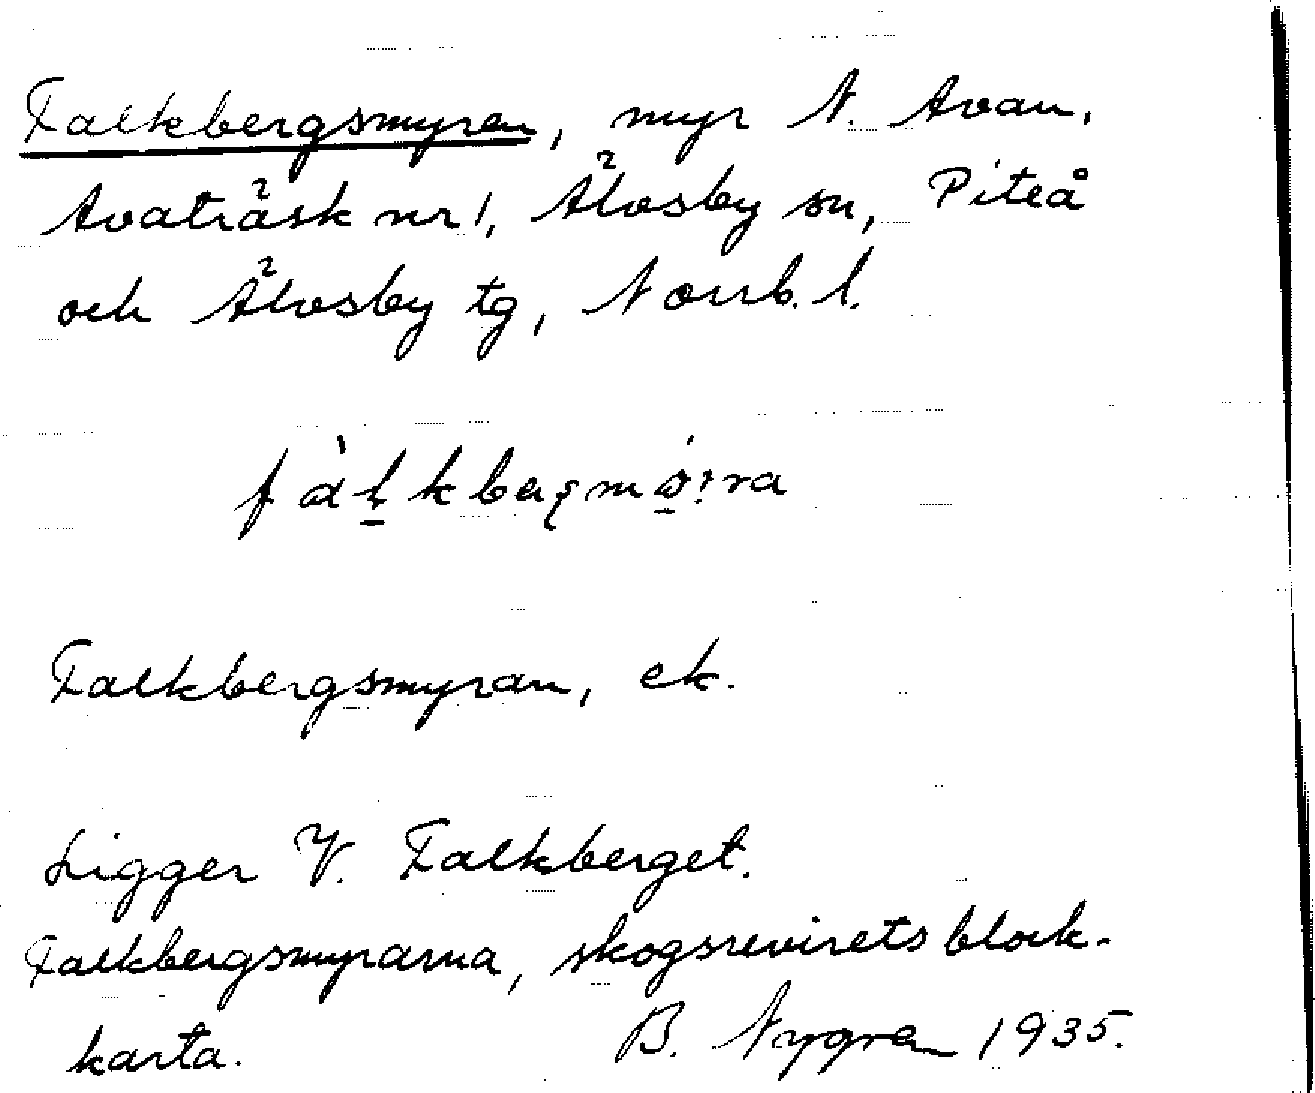 Falkbergsmyren, myr N. Avan,
Avaträsk nr 1, Älvsby sn, Piteå
och Älvsby tg, Norrb. l.
Falkbergsmyran, ek.
Ligger V. Falkberget.
Falkbergsmyrarna, skogsrevirets block-
karta. B. Nygren 1935.